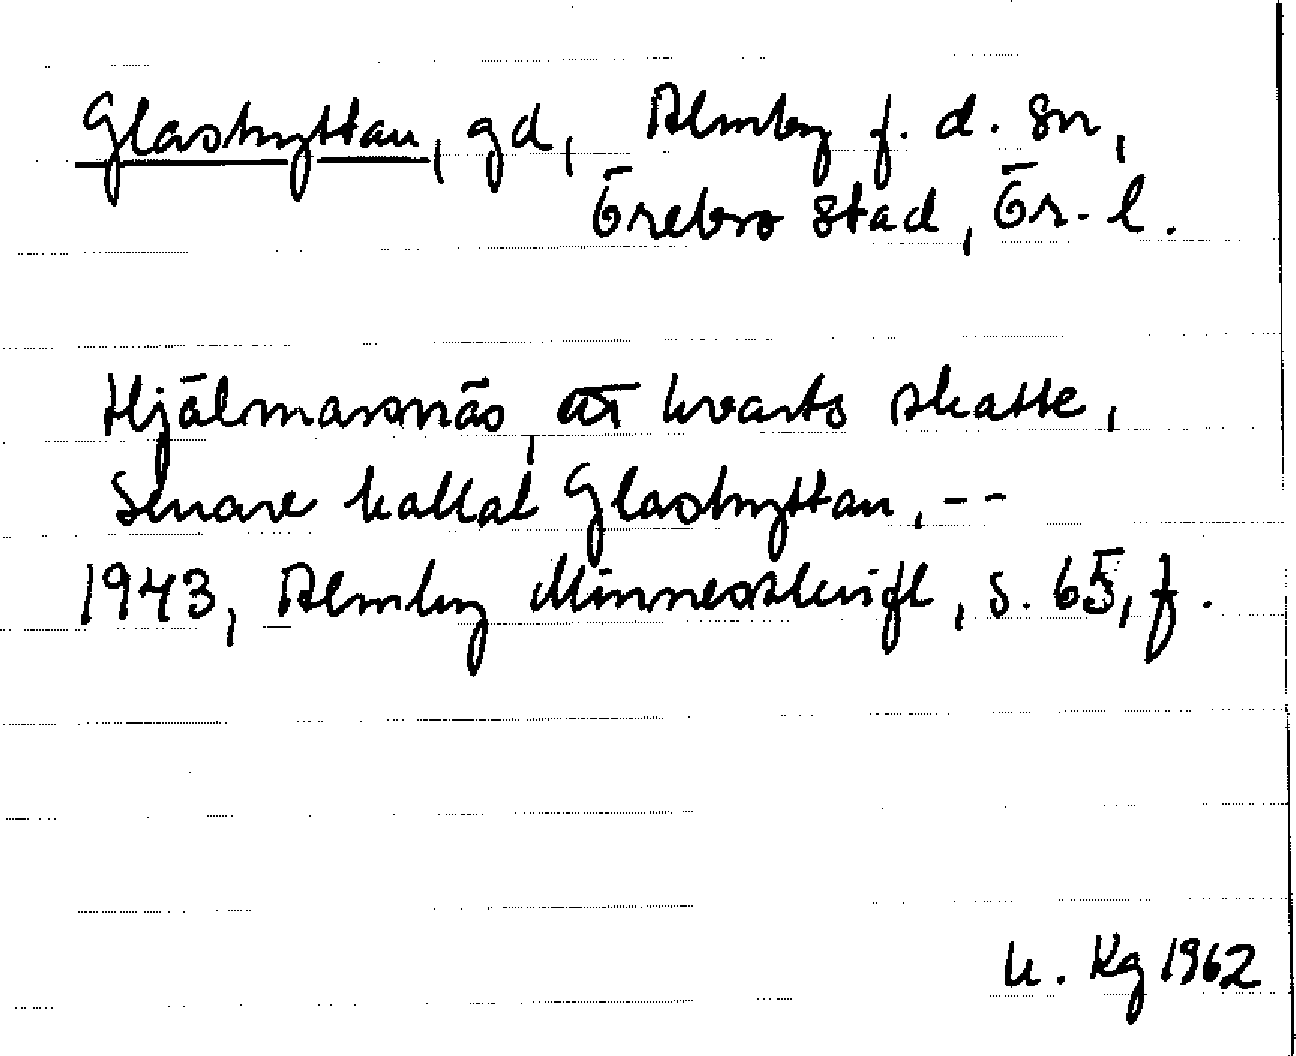 Glashyttan, gd, Almby f. d. sn,
Örebro stad, Ör. l.
Hjälmarsnäs, ett kvarts skatte,
senare kallat Glashyttan, --
1943, Almby Minnesskrift, s. 65, f.
u. Kg 1962